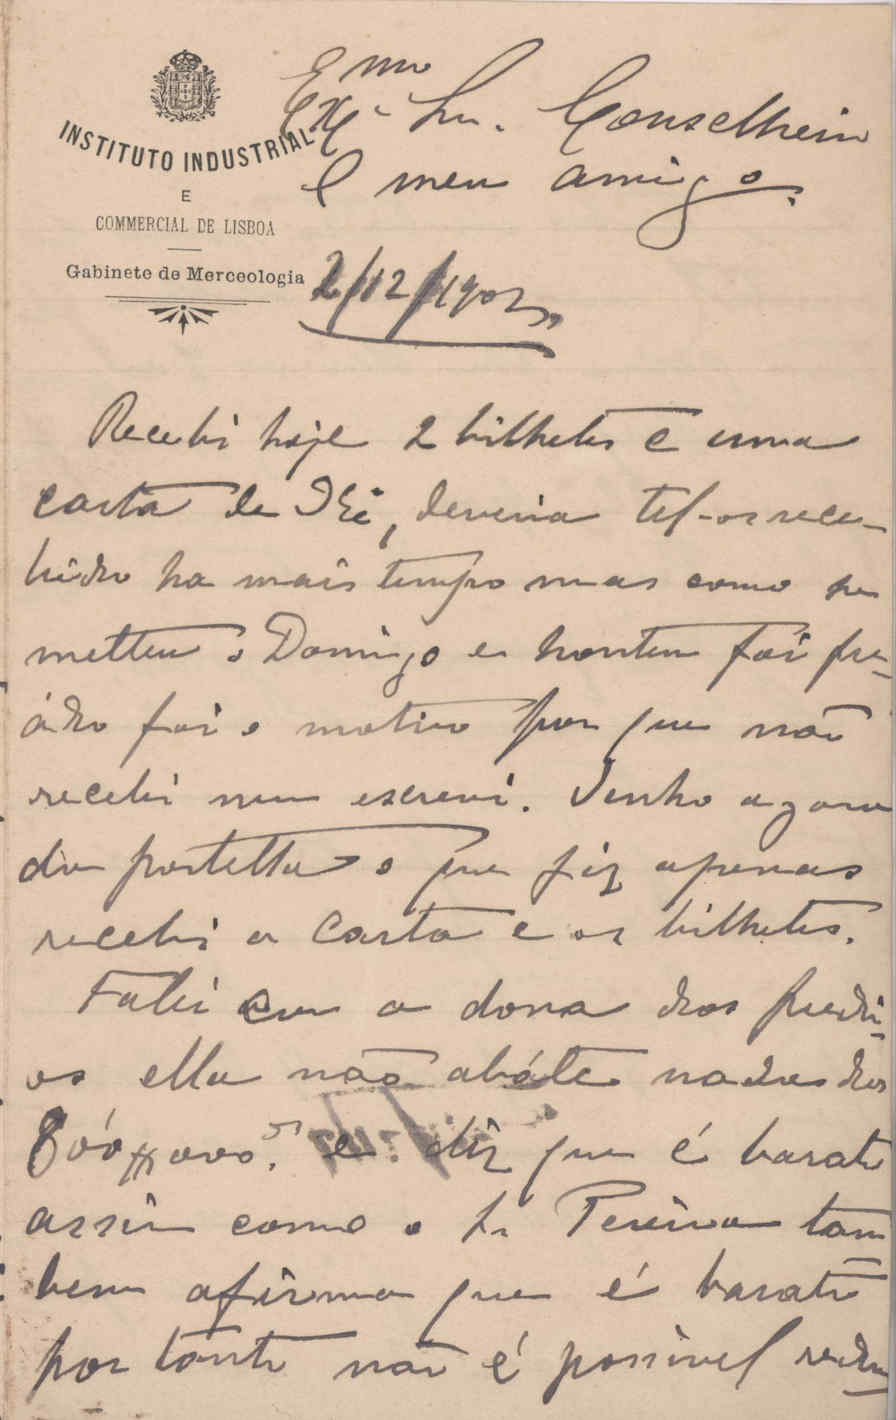 INSTITUTO INDUSTRIAL
E
COMMERCIAL DE LISBOA
Gabinete de Merceologia
Exmo Snr. Conselheiro
E meu amigo.
2/12/1902
Recebi hoje 2 bilhetes e uma
carta de V Ex, deveria tel-os rece-
bido ha mais tempo mas como se
metteu o Domingo e hontem foi fri-
ádo foi o motivo por que não
recebi nem escrevi. Venho agora
da portella o que fiz apenas
recebi a carta e os bilhetes.
Fallei com a dona dos predi-
os ella não abáte nada dos
800$000 e diz que é barato
assim como o Sr Pereira tam
bem afirma que é barato
por tanto não é possivel redu